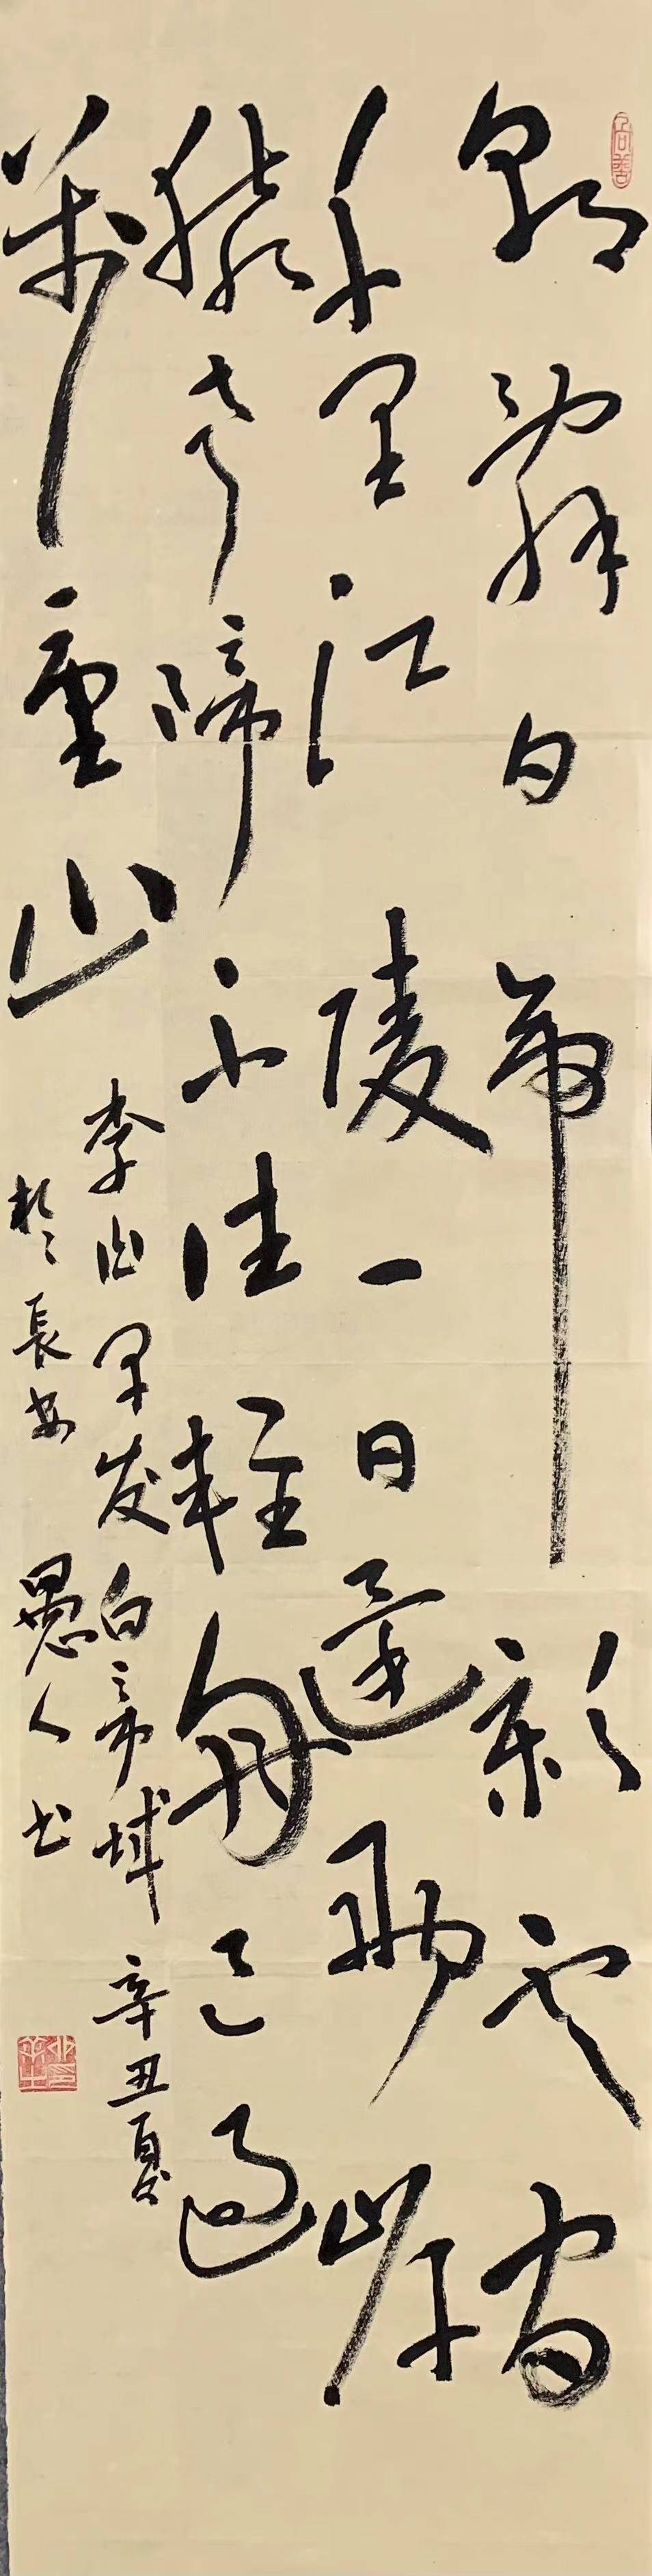 朝辭白帝彩云間
千里江陵一日還兩岸
猿聲啼不住輕舟已過
萬重山
李白早发白帝城 辛丑夏
於長安 愚人书